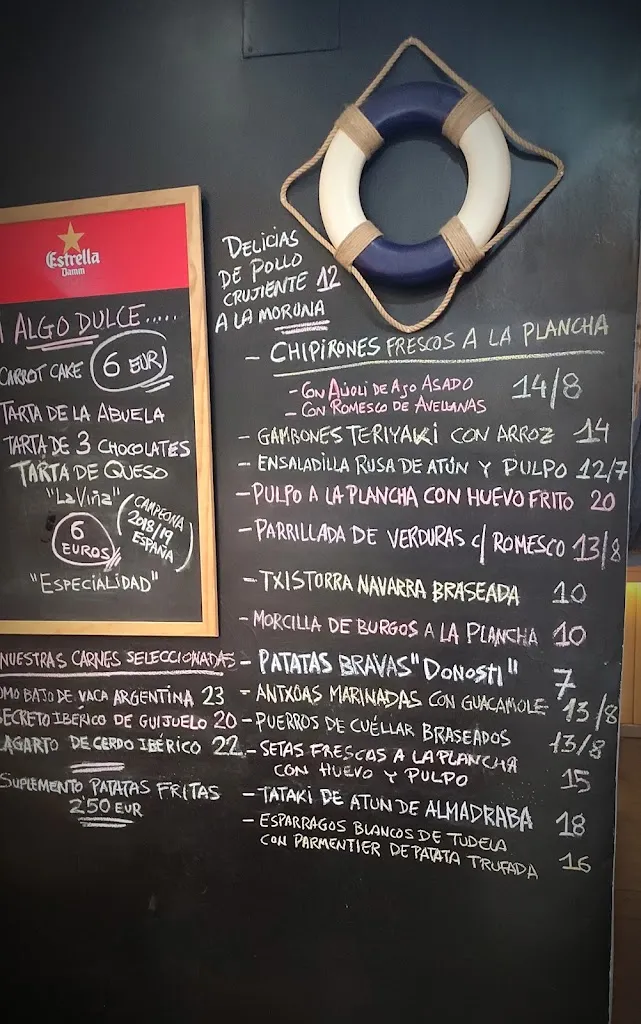 Estrella
Damm
ALGO DULCE.....
CARROT CAKE 6 EUR
TARTA DE LA ABUELA
TARTA DE 3 CHOCOLATES
TARTA DE QUESO
"LA VIÑA"
(CAMPEONA
2018/19
ESPAÑA)
6
EUROS
"ESPECIALIDAD"
NUESTRAS CARNES SELECCIONADAS
OMO BAJO DE VACA ARGENTINA 23
SECRETO IBÉRICO DE GUIJUELO 20
LAGARTO DE CERDO IBÉRICO 22
SUPLEMENTO PATATAS FRITAS
2'50 EUR
DELICIAS
DE POLLO
CRUJIENTE 12
A LA MORUNA
- CHIPIRONES FRESCOS A LA PLANCHA
- CON ALIOLI DE AJO ASADO 14/8
- CON ROMESCO DE AVELLANAS
- GAMBONES TERIYAKI CON ARROZ 14
- ENSALADILLA RUSA DE ATÚN Y PULPO 12/7
- PULPO A LA PLANCHA CON HUEVO FRITO 20
- PARRILLADA DE VERDURAS C/ ROMESCO 13/8
- TXISTORRA NAVARRA BRASEADA 10
- MORCILLA DE BURGOS A LA PLANCHA 10
- PATATAS BRAVAS "DONOSTI" 7
- ANTXOAS MARINADAS CON GUACAMOLE 13/8
- PUERROS DE CUÉLLAR BRASEADOS 13/8
- SETAS FRESCAS A LA PLANCHA
CON HUEVO Y PULPO 15
- TATAKI DE ATUN DE ALMADRABA 18
- ESPARRAGOS BLANCOS DE TUDELA
CON PARMENTIER DE PATATA TRUFADA 16